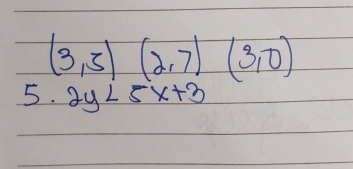 (3,5) (2,7) (3,0)
5. 2y < 5x+3